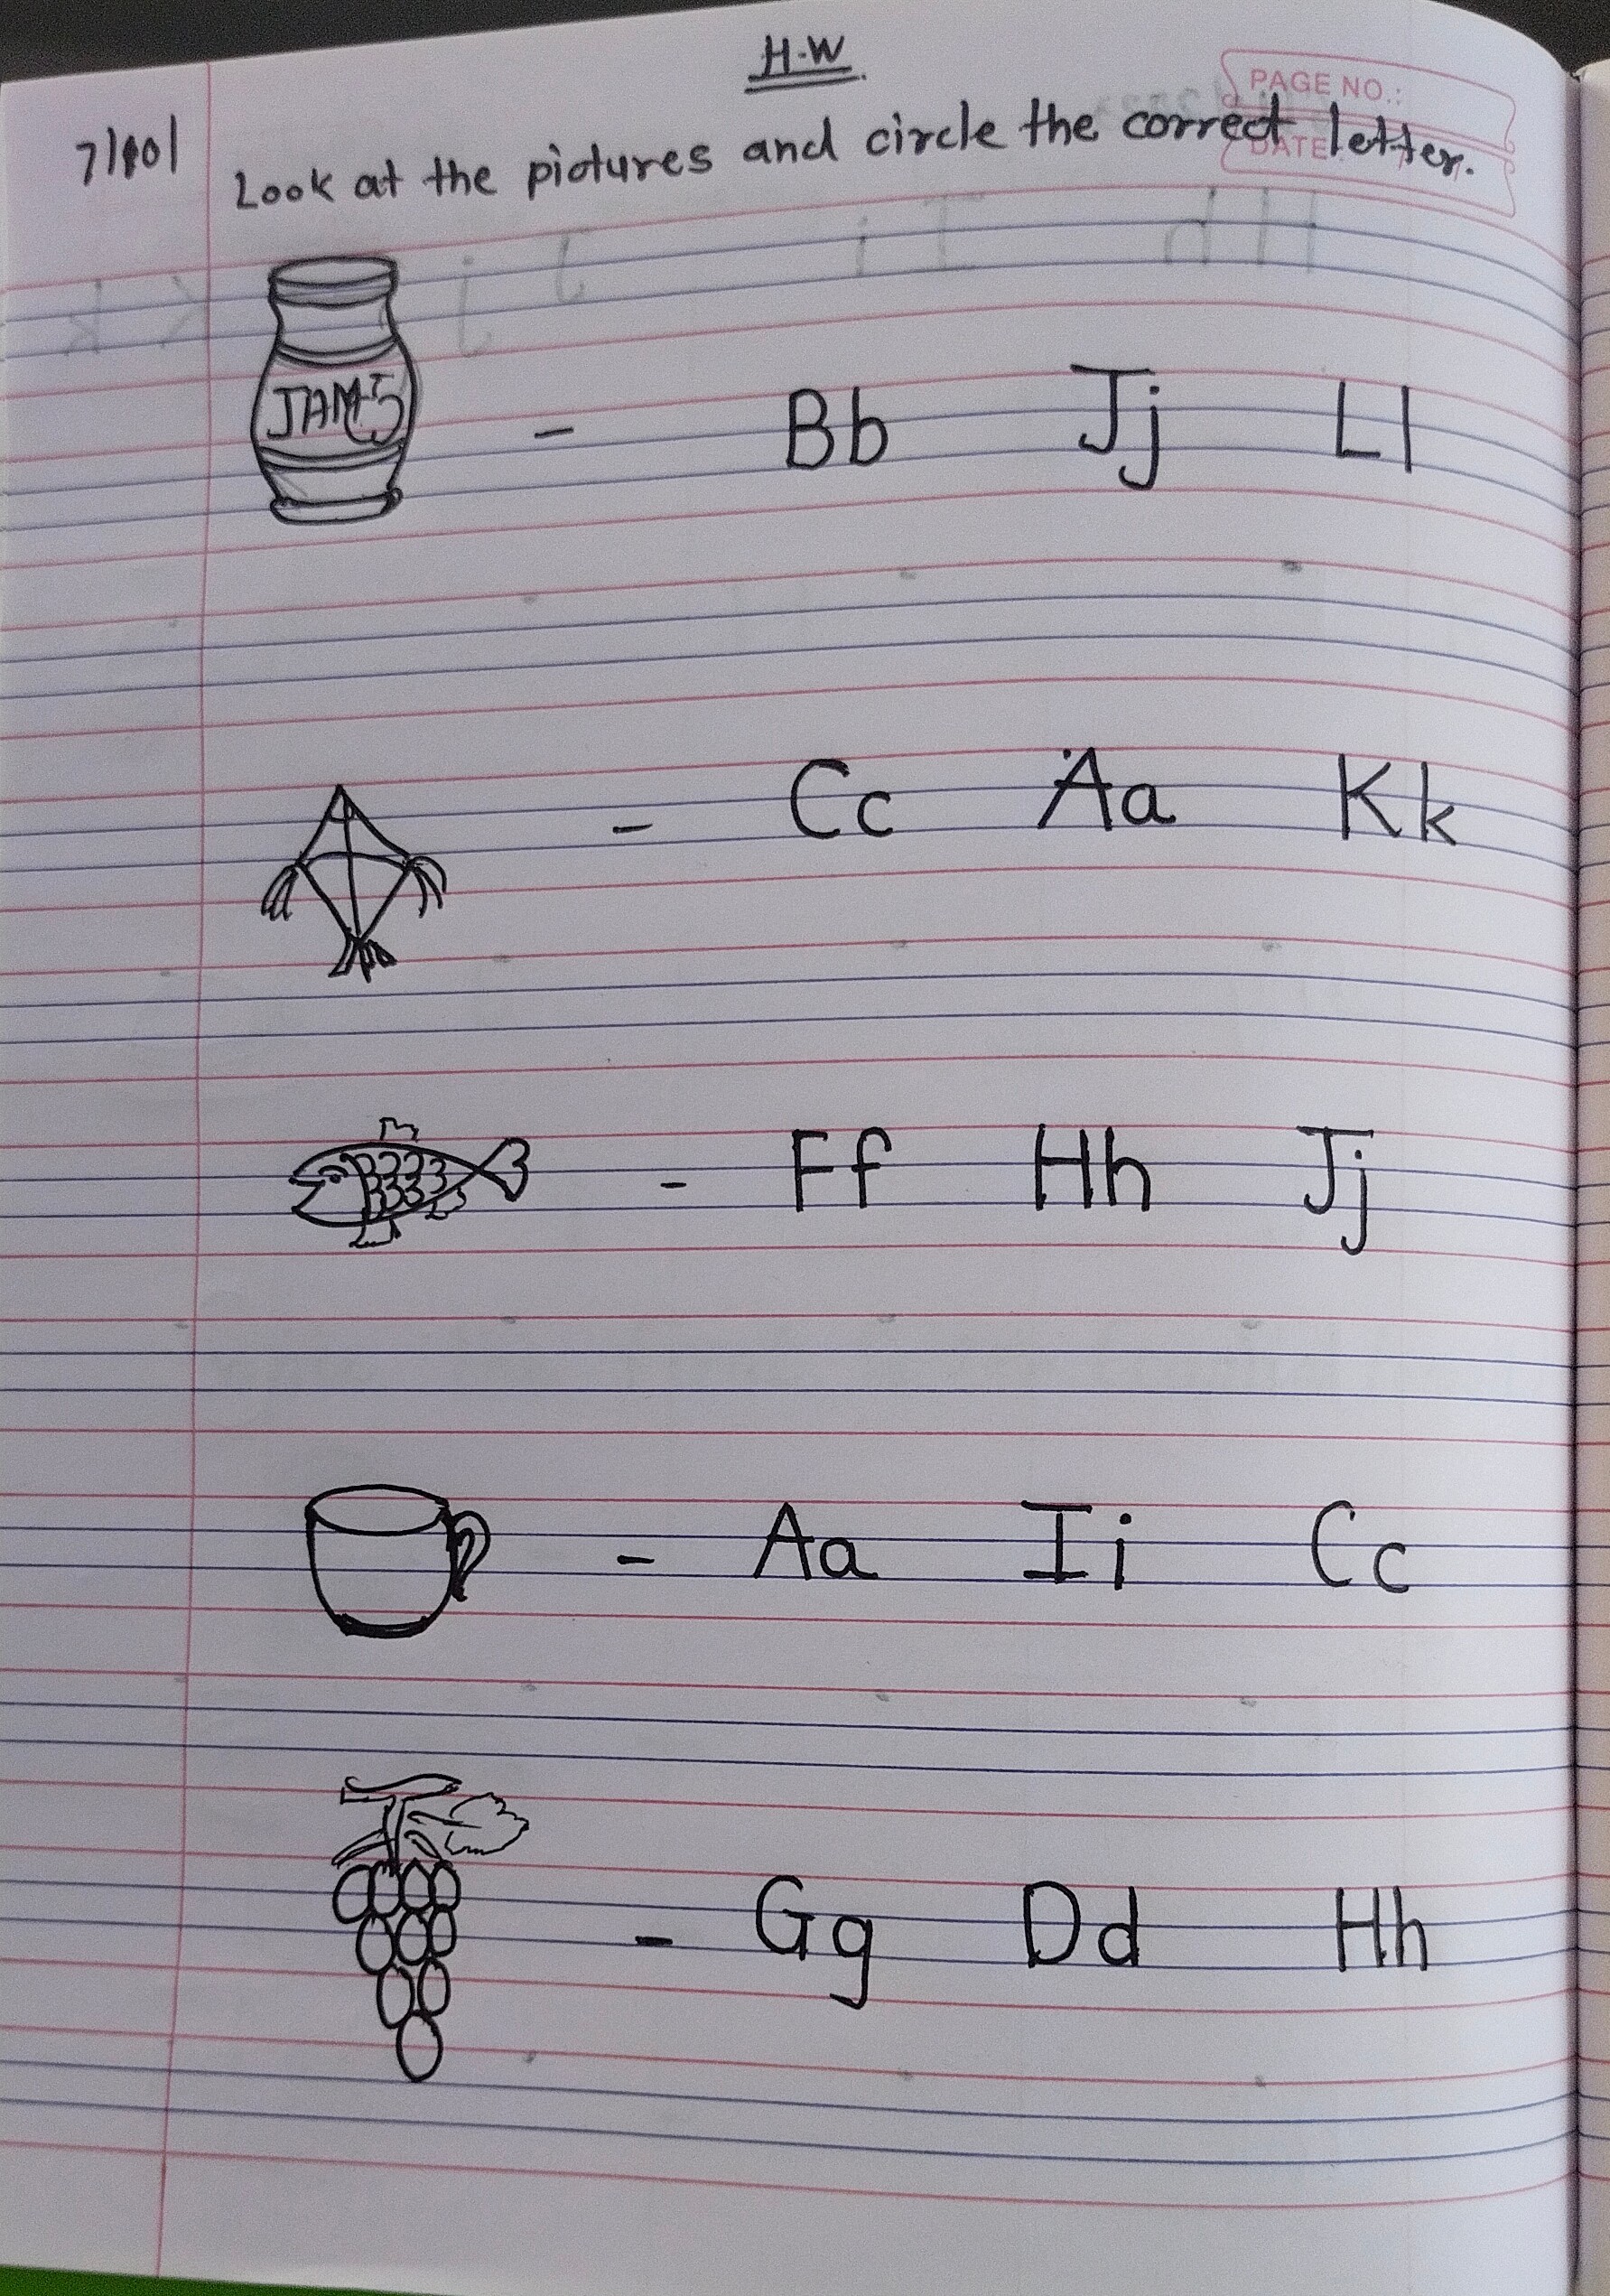 H.W
PAGE NO.:
DATE:
Look at the pictures and circle the correct letter.
JAM
- Bb Jj Ll
- Cc Aa Kk
- Ff Hh Jj
- Aa Ii Cc
- Gg Dd Hh